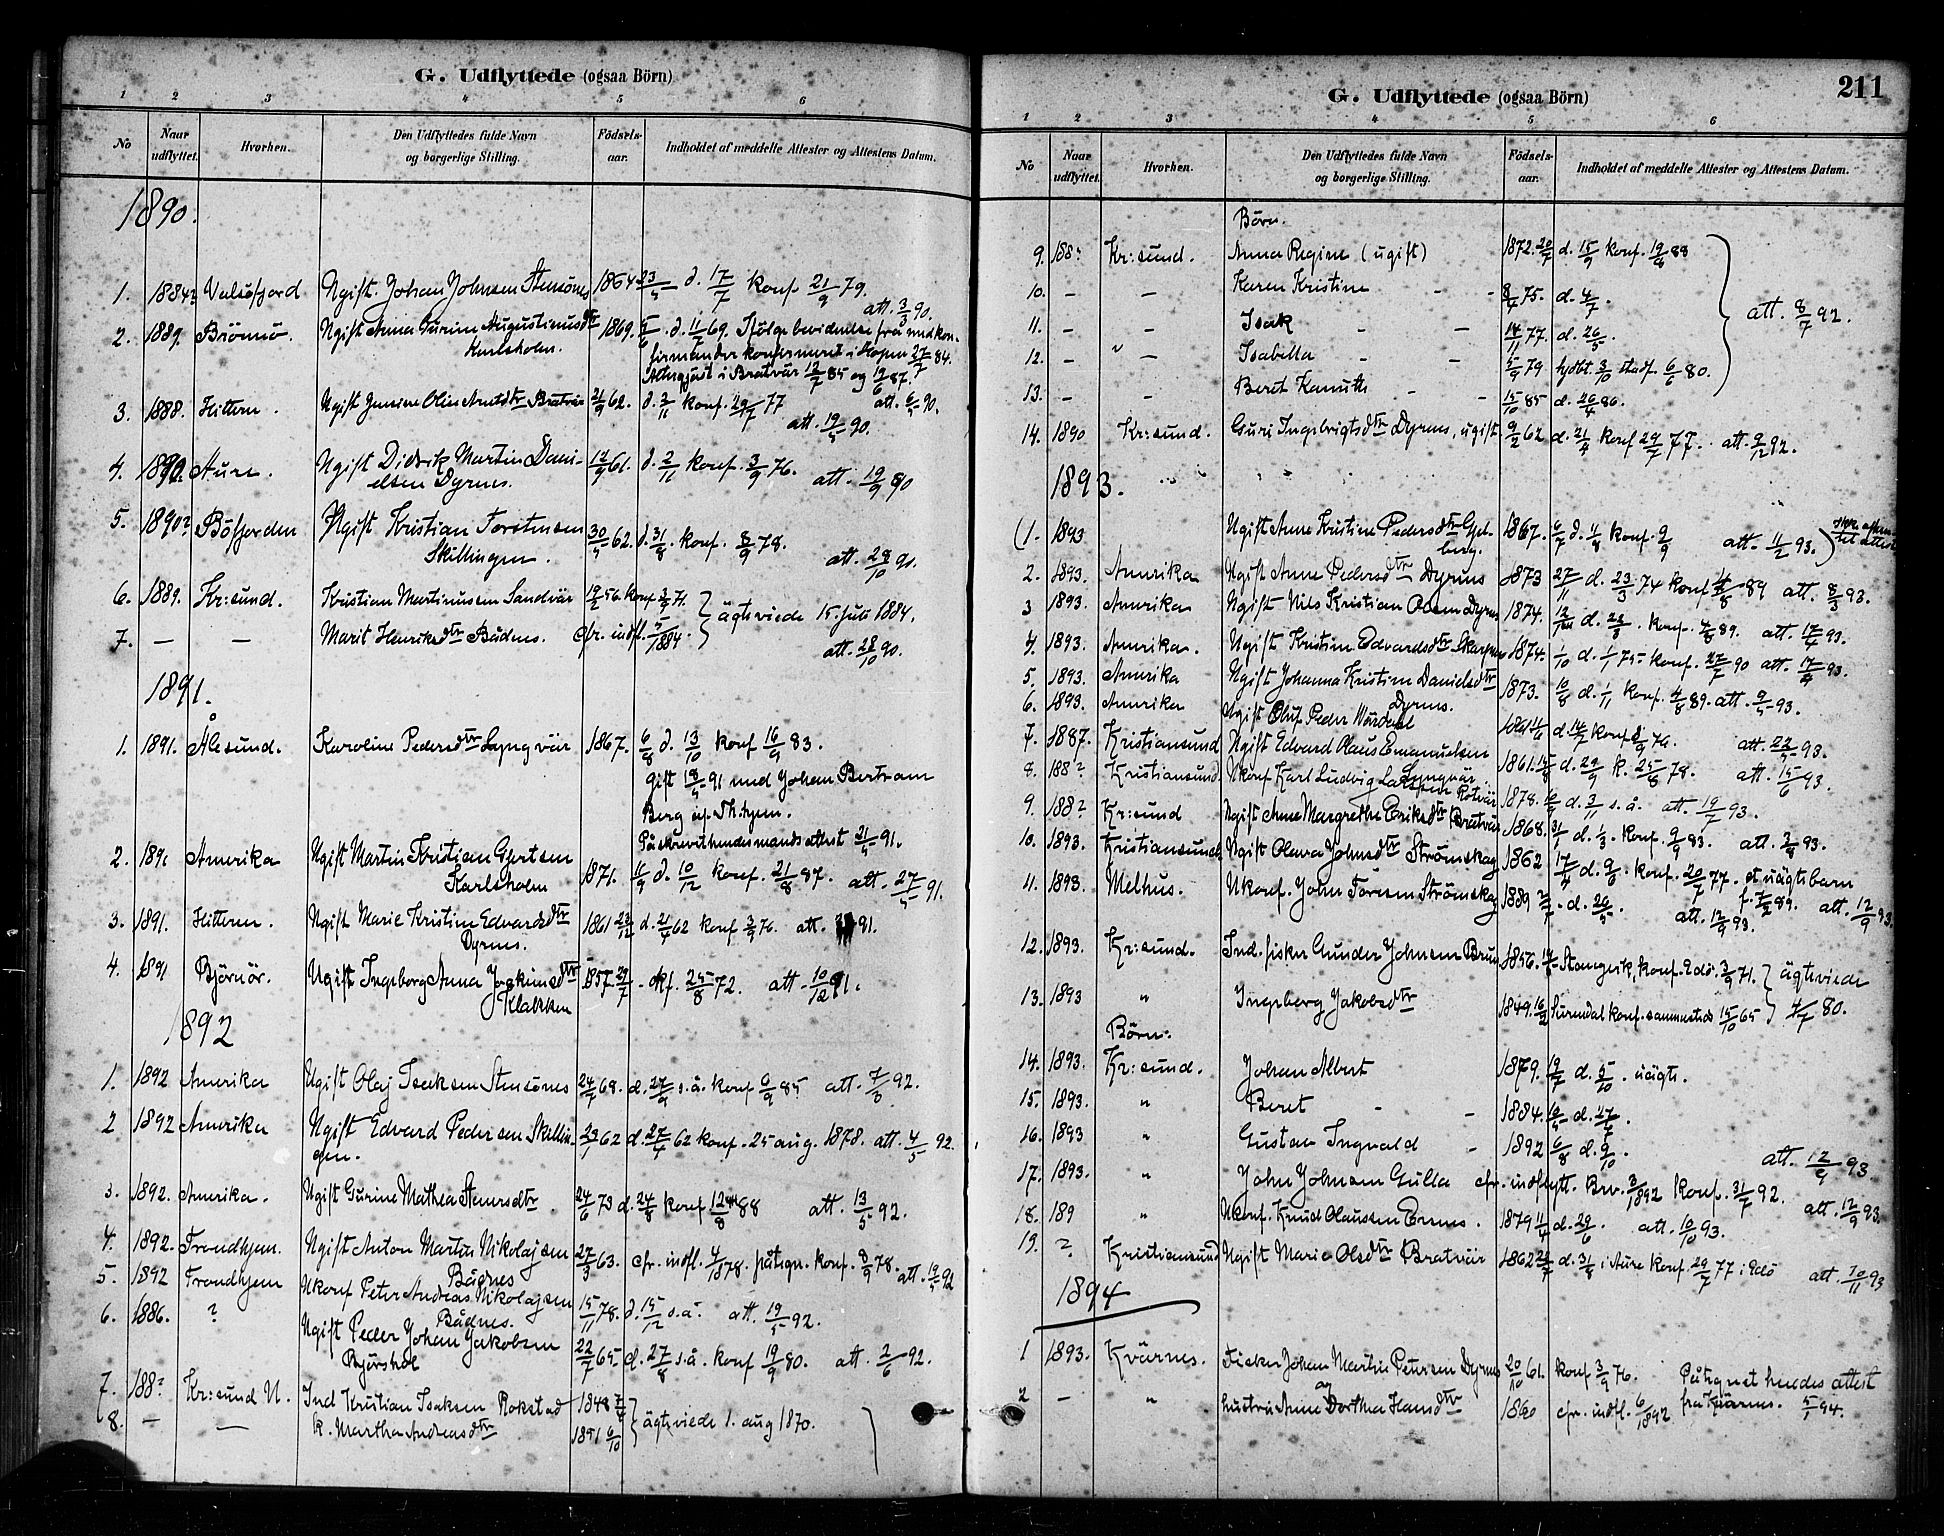 G. Udflyttede (ogsaa Börn)
1 2 3 4 5 6
No Naar udflyttet. Hvorhen. Den Udflyttedes fulde Navn og borgerlige Stilling. Födsels-aar. Indholdet af meddelte Attester og Attestens Datum.
1890.
1. Valsöfjord Ugift Johan Johnsen Stensönes 1864 d. 17/7 konf. 21/9 79.
att. 3/3 90.
2. 1889. Brömnö. Ugift Anna Gurine Augustinusdtr 1869. d. 11/7 69. Ifölge bevidnelse fra medkon-
Karlsholm. firmander konfirmeret i Hopen 27/7 84.
Altergjæst i Bratvär 12/7 85 og 19/6 87.
3. 1888. Hitteren. Ugift Jensine Oline Arntsdtr Bratvär 21/9 62. d. 2/11 konf. 29/7 77
att. 19/5 90.
4. 1890. Aure. Ugift Didrik Martin Dani- 12/9 61. d. 2/11 konf. 3/9 76.
elsen Dyrnes. att. 19/9 90
5. 1890? Böfjorden Ugift Kristian Torstensen 30/5 62. d. 31/8. konf. 8/9 78.
Skillingen. att. 28/10 90.
6. 1889. Kr:sund. Kristian Martinussen Sandvär konf. 3/9 71. ägteviede 15. juli 1884.
7. — — Marit Henriksdtr Bådnes. cfr. indfl. 5/1884.
att. 28/10 90.
1891.
1. 1891. Ålesund. Karoline Pedersdtr Lyngvär 1867. 6/8 d. 13/10 konf 16/9 83.
gift 18/5 91 med Johan Bertram
Berg af Th.hjem.
Påskrevet hendes mands attest 21/5 91.
2. 1891 Amerika Ugift Martin Kristian Gjertsen
Karlsholm 1871. 11/9 d. 10/12 konf. 21/8 87. att. 27/5 91.
3. 1891. Hitteren. Ugift Marie Kristine Edvardsdtr 1861 23/12 d. 21/4 62 konf 3/9 76. att. 91.
Dyrnes.
4. 1891 Björnör. Ugift Ingeborg Anna Joakimsdtr 1857. 29/7 - kf. 25/8 72. att. 10/12 91.
Klakken
1892
1. 1892 Amerika Ugift Olaj Isaksen Stensönes 24/7 68. d. 27/9 s.å. konf 6/9 85 att. 92.
2 1892 Amerika Ugift Edvard Pedersen Skillin- 23/1 62 d. 27/4 62 konf. 25 aug. 1878. att. 4/5 92.
gen.
3. 1892. Amerika. Ugift Gurine Mathea Stenersdtr 24/6 73 d. 24/8 konf 88 att. 13/5 92.
4. 1892. Trondhjem. Ugift Anton Martin Nikolajsen 27/3 63. cfr. indfl. 4/1878. påtegn. konf. 8/9 78.
Bådnes att. 19/5 92
5. 1892 Trondhjem Ukonf Peter Andreas Nikolajsen 15/11 78. d. 15/12 s.å. att. 19/5 92.
Bådnes.
6. 1886. ? Ugift Peder Johan Jakobsen 22/7 65 d. 27/8 s.å. konf 19/9 80. att. 2/6 92.
7. 188? Kr:sund N. Ind Kristian Isaksen Rokstad 1848 ägteviede 1. aug 1870.
8. — — k. Martha Andreasdtr
G. Udflyttede (ogsaa Börn) 211
1 2 3 4 5 6
No Naar udflyttet. Hvorhen. Den Udflyttedes fulde Navn og borgerlige Stilling. Födsels-aar. Indholdet af meddelte Attester og Attestens Datum.
Börn.
9. 188? Kr:sund. Anna Regine (ugift) 1872. d. 15/9 konf. 88
10. — — Karen Kristine - - 75. d. 4/7.
11. — — Isak - — 14/11 77. d. 26/5. att. 8/7 92.
12. — — Isabella - - 5/9 79 hjdbt. 3/10 stadf. 6/6 80.
13. - - Beret Kanutte - - 15/10 85 d. 26/4 86.
14. 1890 Kr:sund. Guri Ingebrigtsdtr Dyrnes, ugift 9/2 62 d. 21/4 konf 29/7 77. att. 9/12 92.
1893.
(1. 1893 Ugift Anne Kristine Pedersdtr 1867. 6/7 d. 11/8 konf. 9/9 att. 11/2 93.)
2. 1893. Amerika Ugift Anne Pedersdtr Dyrnes 1873 27/11 d. 23/3 74 konf 89 att. 8/3 93.
3 1893. Amerika Ugift Nils Kristian Olsen Dyrnes 1874. konf. 89. att. 93.
4. 1893. Amerika. Ugift Kristine Edvardsdtr 1874. 1/10 d. 1/1 75 konf. 27/7 90 att. 17/4 93.
5. 1893. Amerika Ugift Johanna Kristine Danielsdtr 1873. 10/8 d. 1/11 konf. 4/8 89. att. 9/5 93.
Dyrnes.
6. 1893. Amerika Ugift Oluf Peder d. 14/7 konf. 76. att. 93.
7. 1887. Kristiansund Ugift Edvard Olaus Emanuelsen 1861. d. 29/9 k. 25/8 78. att. 15/6 93.
Lyngvär
8. 188? Kristiansund Ukonf Karl Ludvig Larssen Rotvär 1878. d. 3/11 s.å. att. 19/7 93.
9. 188? Kr:sund Ugift Anne Margrethe Eriksdtr Bratvär 1868. 31/1 d. 1/3. konf. 9/9 83. att. 93.
10. 1893. Kristiansund Ugift Olava Johnsdtr Strömskag 1862 17/4 d. 9/6. konf. 20/7 77. et uägte barn
f. 89. att. 12/9 93.
11. 1893. Melhus. Ukonf. John Toresen Strömskag 1889 - d. 26/5. att. 12/9 93.
12. 1893. Kr:sund. Ind. fisker Gunder Johnsen Bruun 1856. Stangvik, konf. Edö. 3/9 71. ägteviede
13. 1893 " Ingeborg Jakobsdtr 1849. Surendal konf. sammesteds 15/10 65 80.
Börn:
14. 1893. Kr:sund. Johan Albert 1879. d. 5/10. uägte.
15. 1893. " Beret - - 1884. 10/5 d. 27/7.
16. 1893 " Gustav Ingvald - 1892 6/8 d. 9/10.
att. 12/9 93
17. 1893. " John Johnsen Gulla cfr. indflytt. Brv. 3/1892 konf. 31/7 92.
att. 12/9 93.
18. 189 " Ukonf. Knud Olaussen 1879 11/4 d. 29/6. att. 10/10 93.
19. ? Kristiansund Ugift Marie Olsdtr Bratvär 1862 d. 3/8 i Aure konf. 29/7 77 i Edö att. 10/11 93
1894
1 1893. Kvärnes. Fisker Johan Martin Petersen Dyrnes 20/10 61. konf 3/9 76. Påtegnet hendes attest
og fra Kvärnes. 5/1 94.
2 — " hustru Anne Dorthea Hansdtr 1860 cfr. indfl. 6/1892